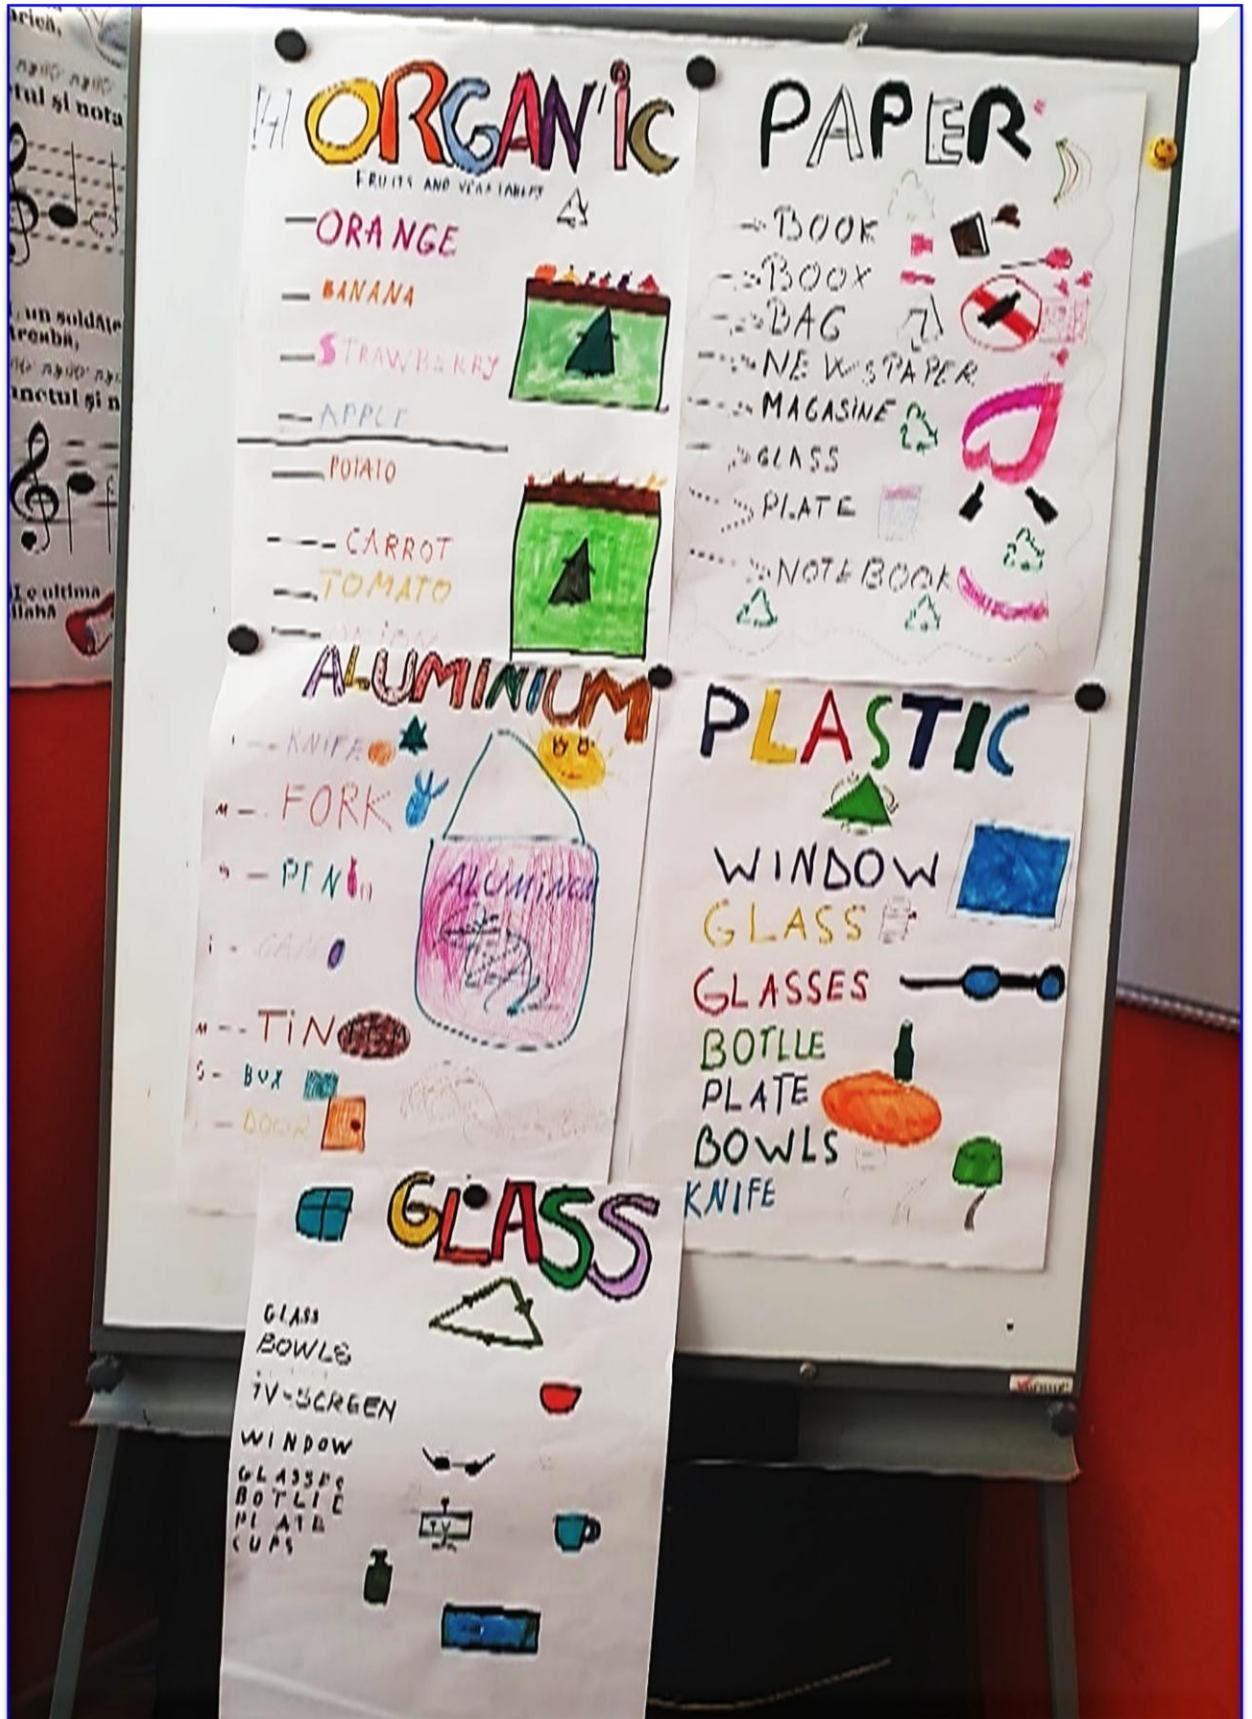 tul și nota
un
ORGANIC
FRUITS AND
ORANGE
BANANA
STRAWBERRY
APPLE
POTATO
CARROT
TOMATO
ONION
PAPER
BOOK
BOOX
BAG
NEWSPAPER
MAGASINE
GLASS
PLATE
NOTEBOOK
și n
e ultima
ALUMINIUM
KNIFE
FORK
PEN
TIN
BOX
DOOR
PLASTIC
WINDOW
GLASS
GLASSES
BOTLLE
PLATE
BOWLS
KNIFE
GLASS
GLASS
BOWLS
TV-SCREEN
WINDOW
GLASSES
BOTLLE
PLATE
CUPS
TV